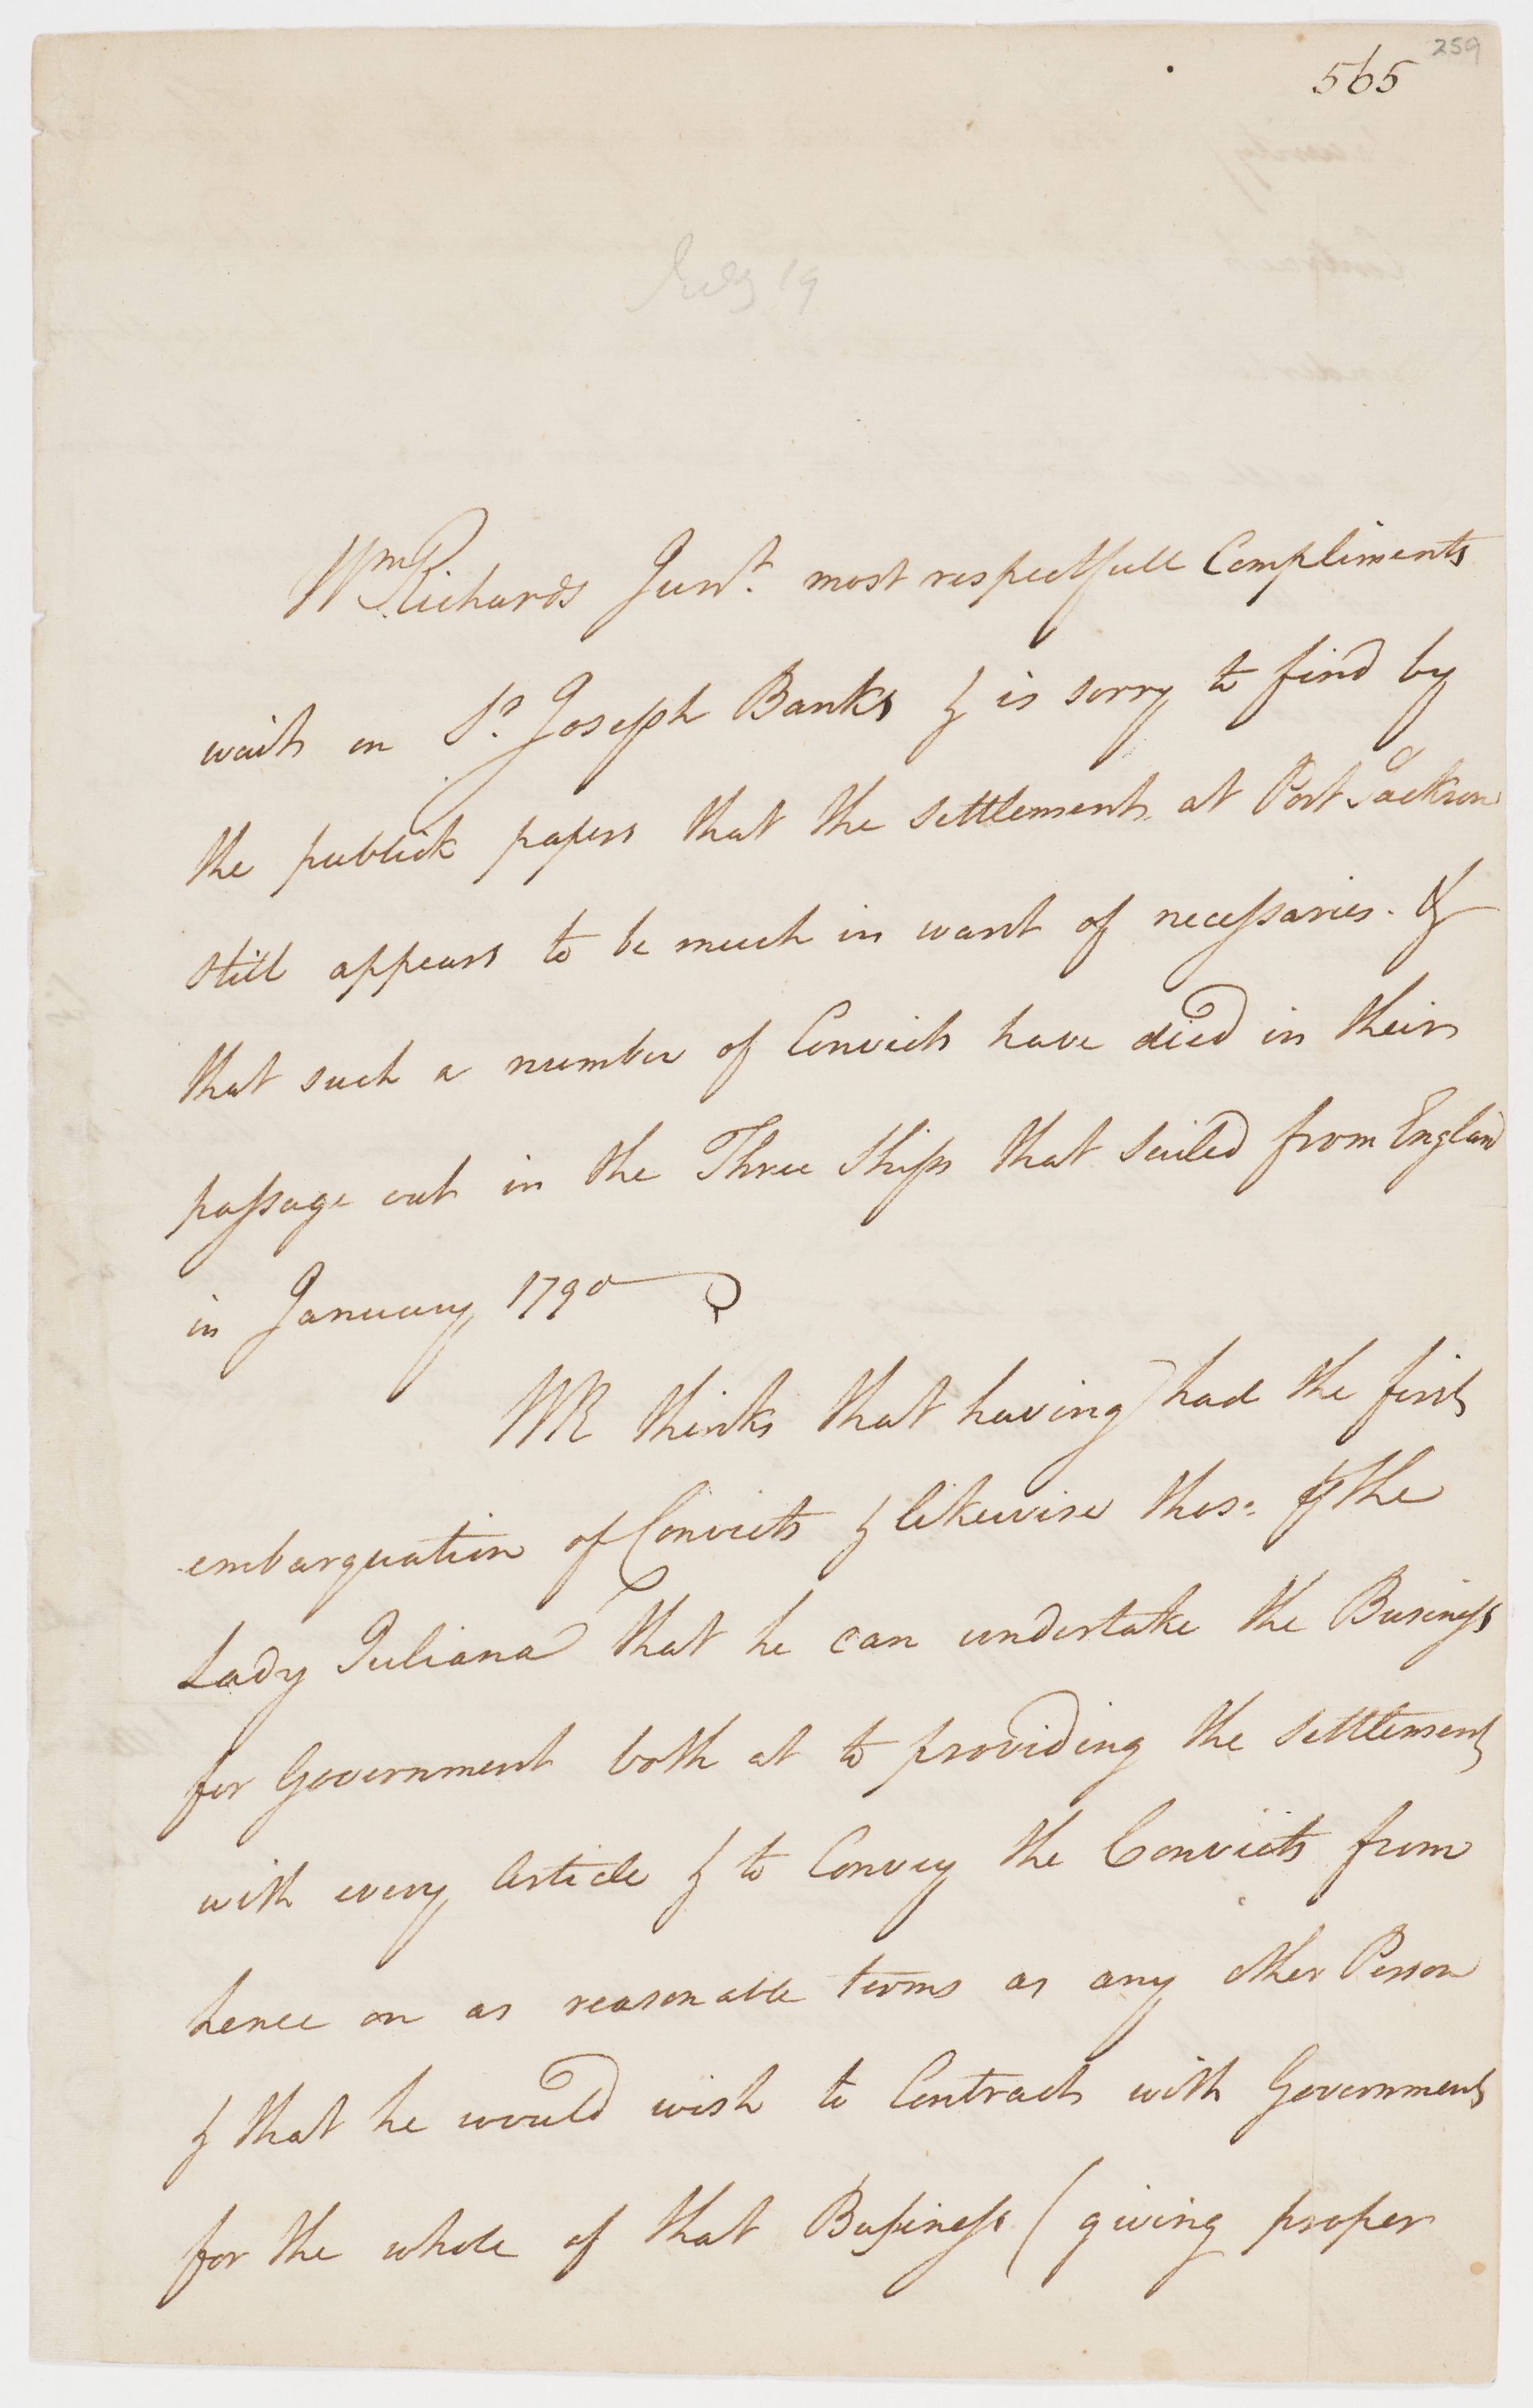 259
565
July 19
Wm Richards Junr. most respectfull Compliments
waits on Sr. Joseph Banks & is sorry to find by
the publick papers that the settlement at Port Jackson
still appears to be much in want of necessaries. &
that such a number of Convicts have died in their
passage out in the Three Ships that Sailed from England
in January 1790
WR thinks that having had the first
embarquation of Convicts & likewise those of the
Lady Juliana that he can undertake the Business
for Government both at to providing the settlement
with every Article & to Convey the Convicts from
hence on as reasonable terms as any other Person
& that he would wish to Contract with Government
for the whole of that Business (giving proper